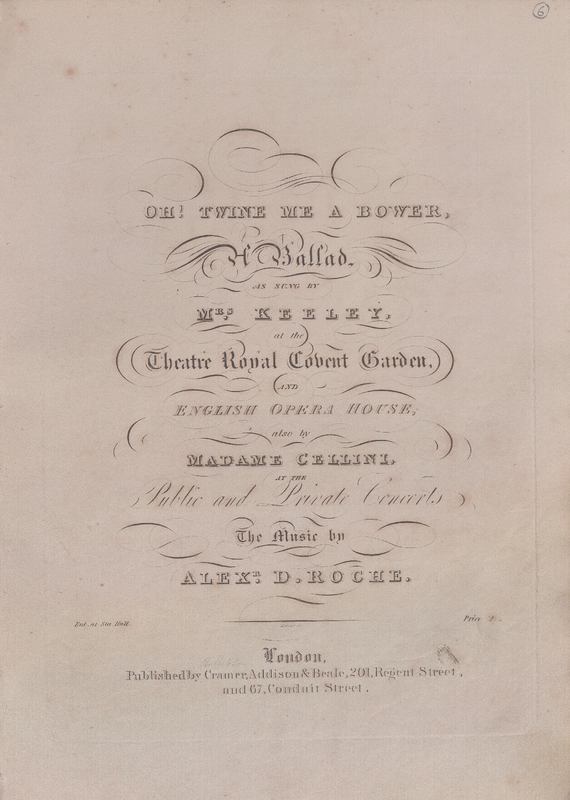 6
OH! TWINE ME A BOWER,
A Ballad.
AS SUNG BY
MRS. KEELEY,
at the
Theatre Royal Covent Garden,
AND
ENGLISH OPERA HOUSE,
also by
MADAME CELLINI,
AT THE
Public and Private Concerts
The Music by
ALEXR. D. ROCHE.
Ent. at Sta. Hall.
Price
London,
Published by Cramer, Addison & Beale, 201, Regent Street,
and 67, Conduit Street.